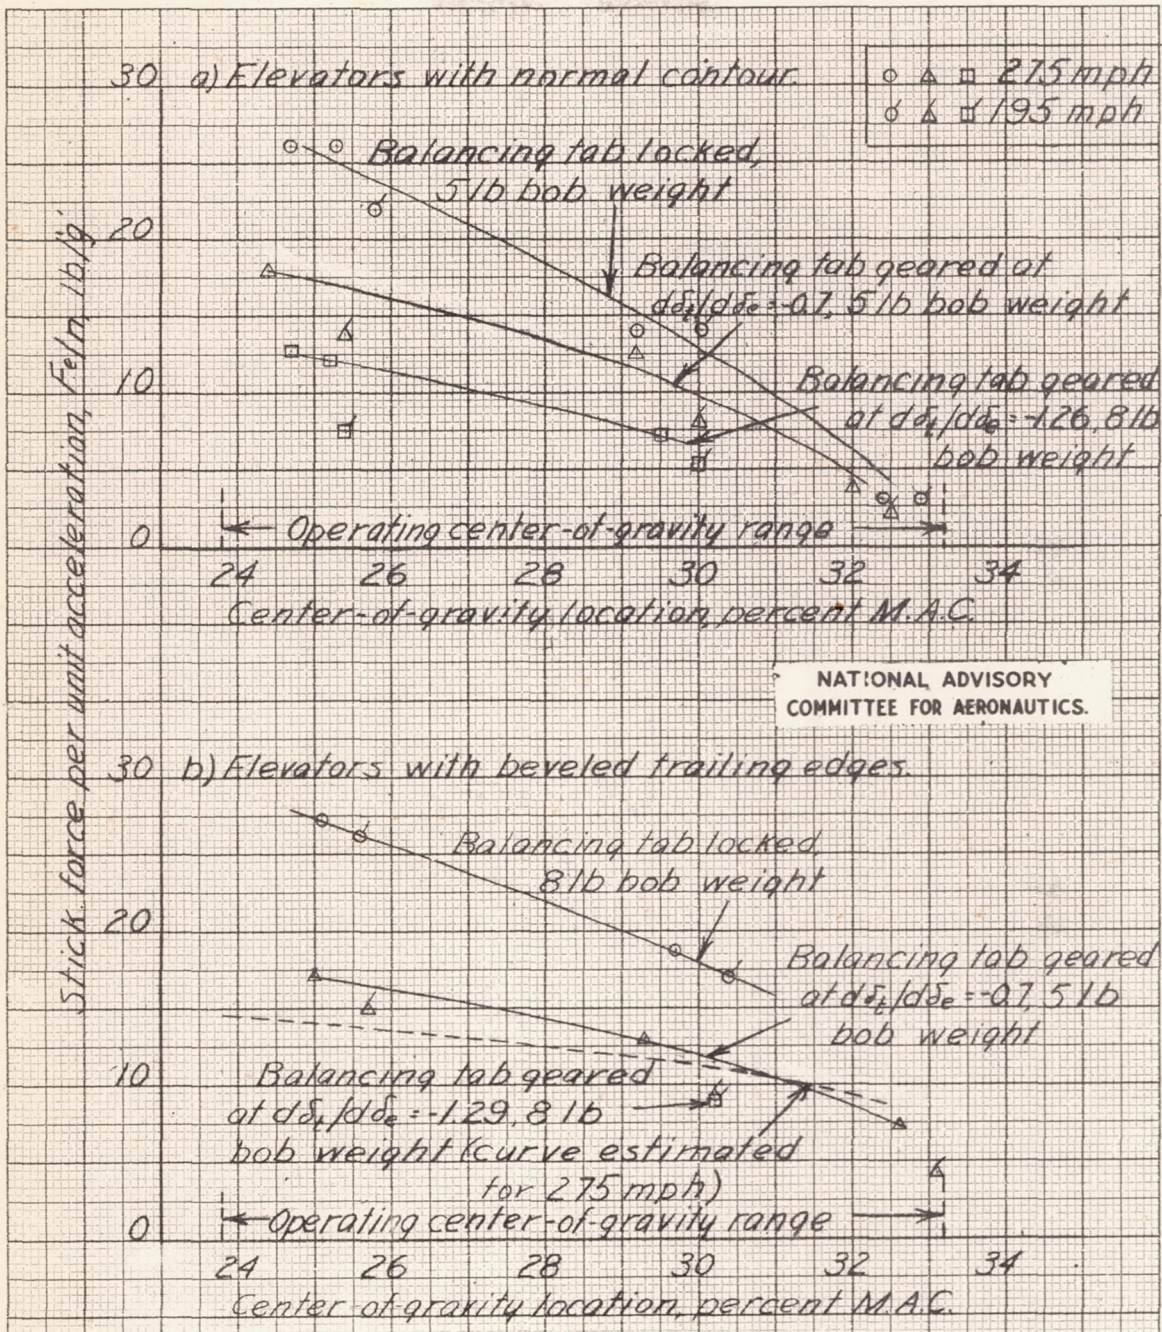 30 a) Elevators with normal contour.
○ △ □ 275 mph
195 mph
Balancing tab locked,
5 lb bob weight
20
Balancing tab geared at
dδt/dδe=-0.7, 5 lb bob weight
10
Balancing tab geared
at dδt/dδe=-1.26, 8 lb
bob weight
Operating center-of-gravity range
0
24 26 28 30 32 34
Center-of-gravity location, percent M.A.C.
Stick force per unit acceleration, Fe/n, lb/g
NATIONAL ADVISORY
COMMITTEE FOR AERONAUTICS.
30 b) Elevators with beveled trailing edges.
Balancing tab locked,
8 lb bob weight
20
Balancing tab geared
at dδt/dδe=-0.7, 5 lb
bob weight
10
Balancing tab geared
at dδt/dδe=-1.29, 8 lb
bob weight (curve estimated
for 275 mph)
Operating center-of-gravity range
0
24 26 28 30 32 34
Center-of-gravity location, percent M.A.C.